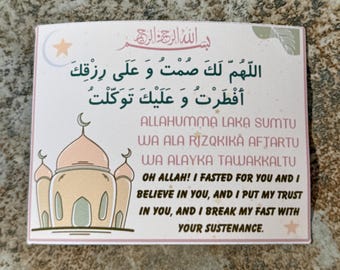 بسم الله الرحمن الرحيم
اللّهُمّ لَكَ صُمْتُ وَ عَلَى رِزْقِكَ
اَفْطَرْتُ وَ عَلَيْكَ تَوَكّلْتُ
ALLAHUMMA LAKA SUMTU
WA ALA RIZQKIKÂ AFTARTU
WA ALAYKA TAWAKKALTU
OH ALLAH! I FASTED FOR YOU AND I
BELIEVE IN YOU, AND I PUT MY TRUST
IN YOU, AND I BREAK MY FAST WITH
YOUR SUSTENANCE.